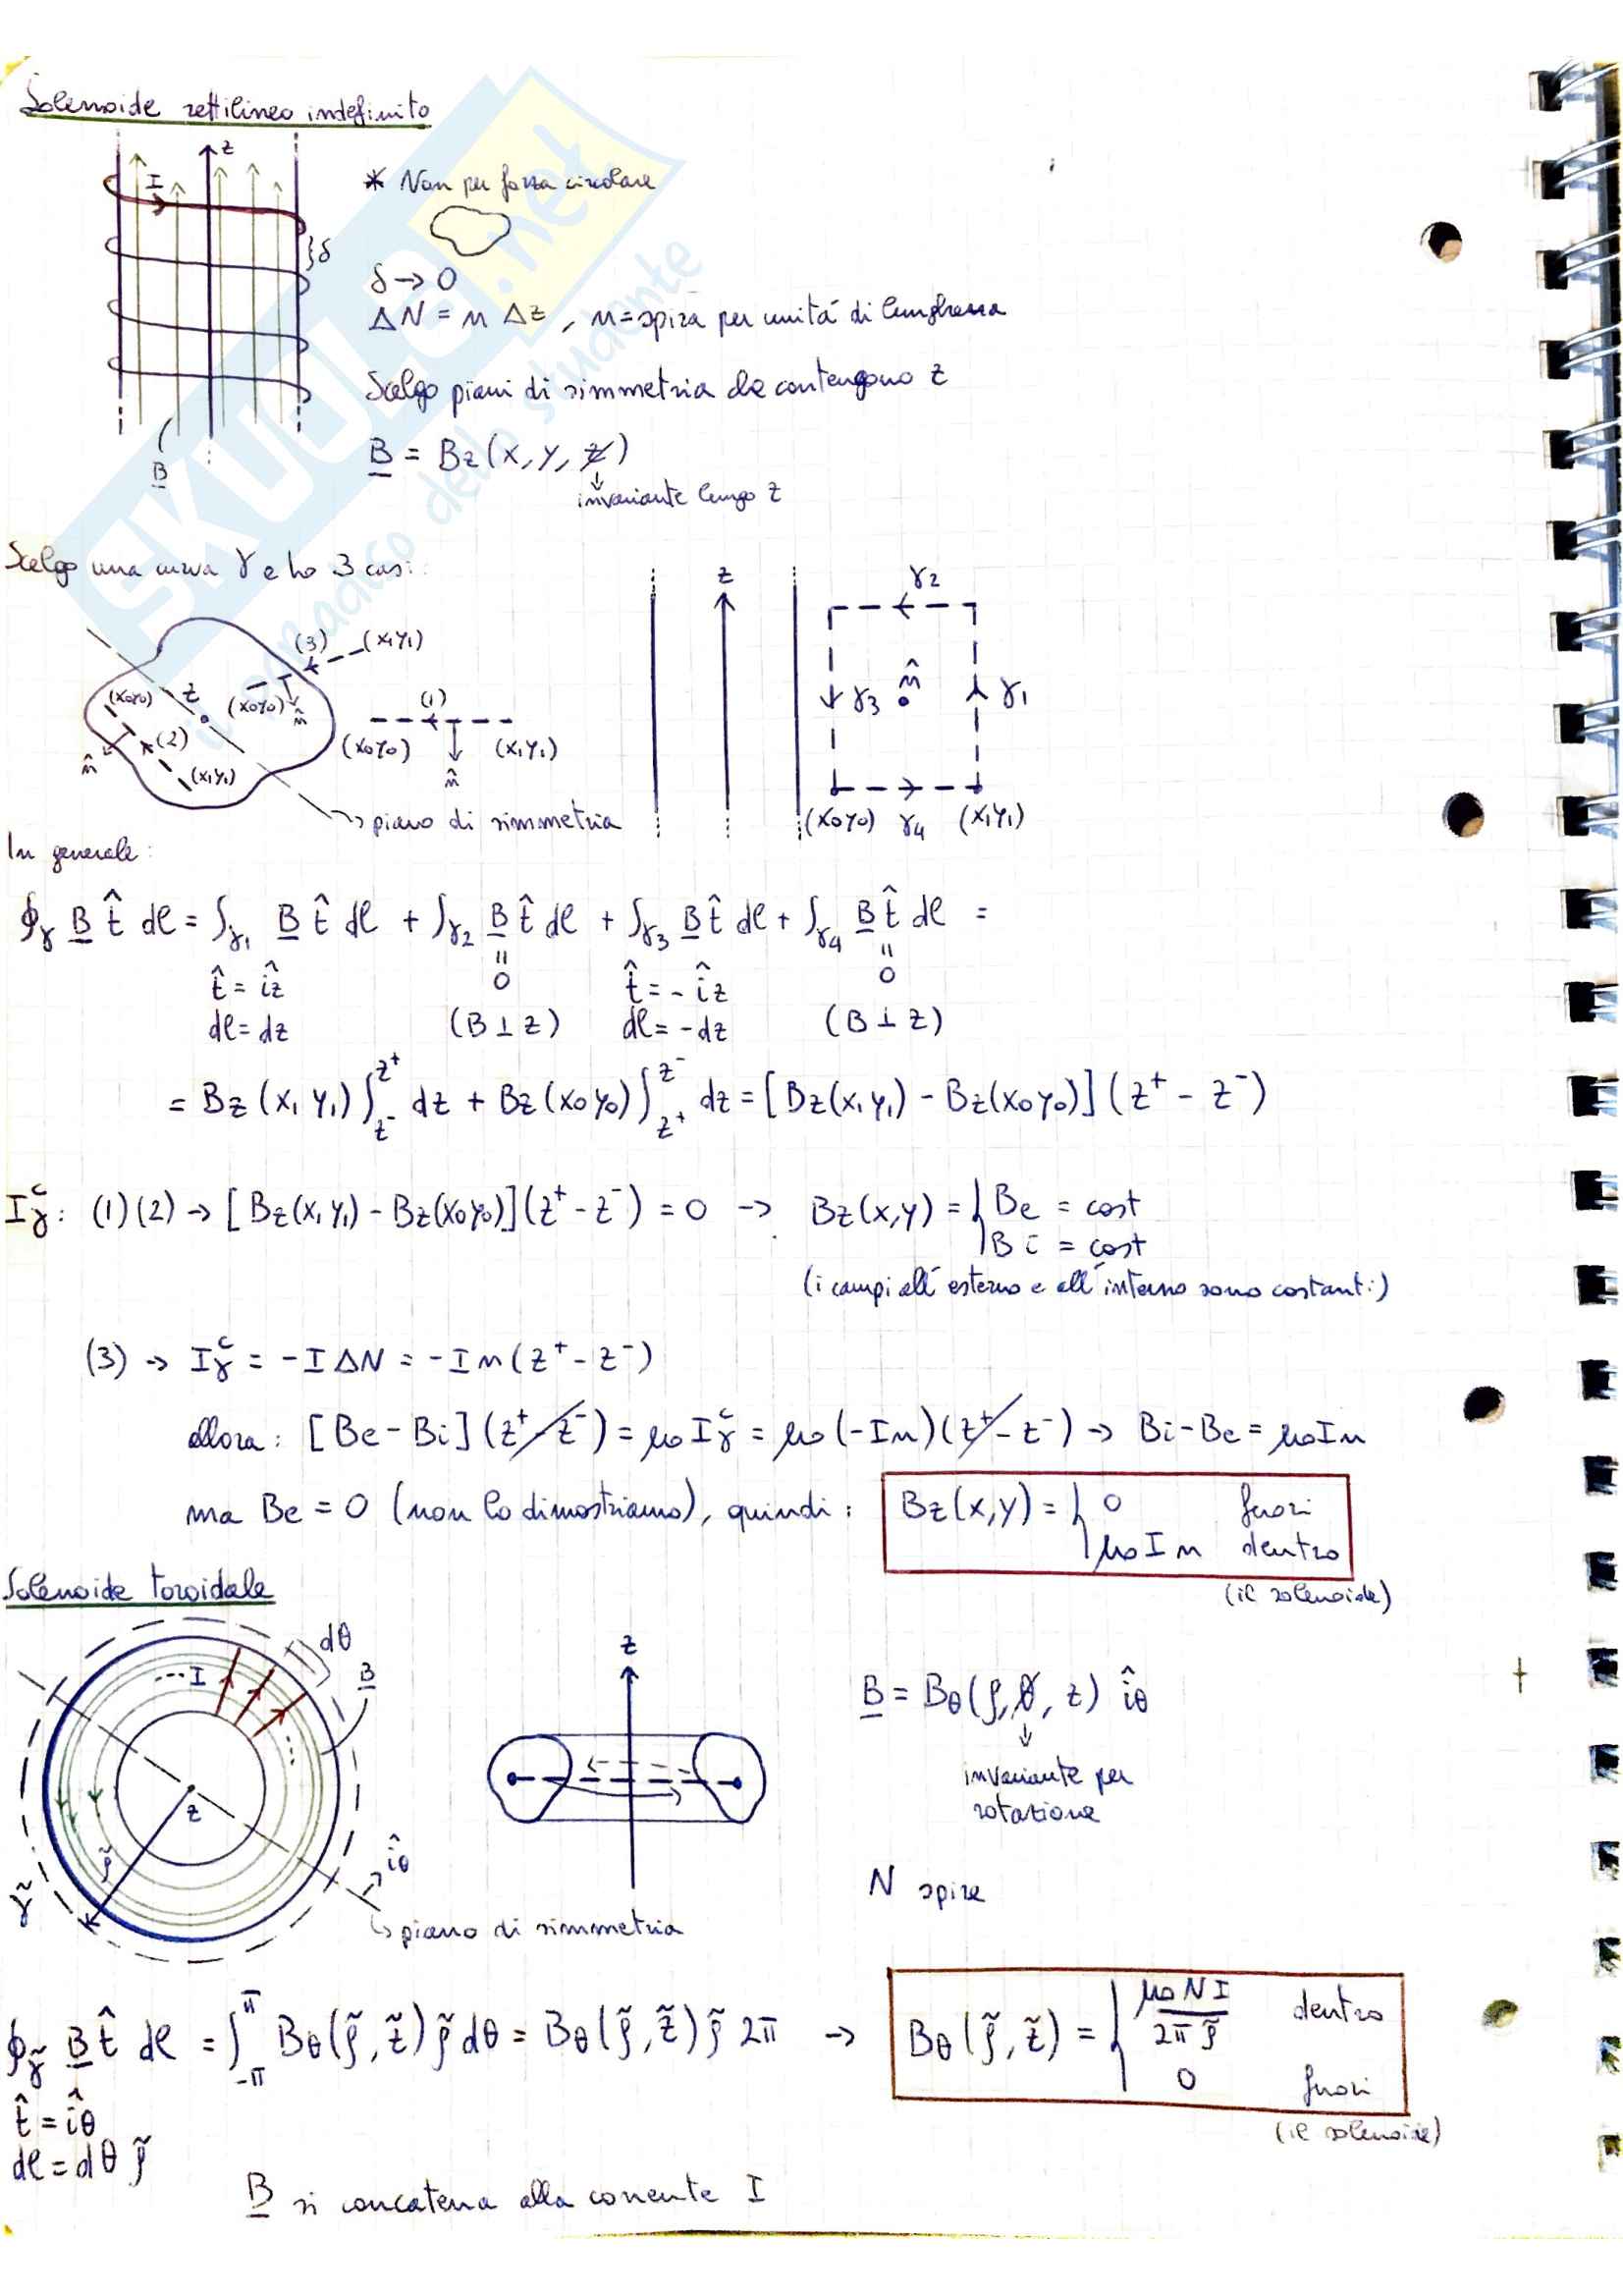 Solenoide rettilineo indefinito
z
I
* Non per forza circolare
δ
δ → 0
ΔN = n Δz , n = spira per unitá di lunghezza
Scelgo piani di simmetria che contengono z
B
B = Bz (x, y, z)
invariante lungo z
SKUOLA.net
il paradiso dello studente
Scelgo una curva γ e ho 3 casi:
z γ2
(3) (x1y1)
(x0y0) z (x0y0) n̂ (1) n̂ γ3 γ1
(2) (x0y0) (x1y1)
n̂ (x1y1) n̂
piano di simmetria (x0y0) γ4 (x1y1)
In generale:
∮γ B t̂ dl = ∫γ1 B t̂ dl + ∫γ2 B t̂ dl + ∫γ3 B t̂ dl + ∫γ4 B t̂ dl =
t̂ = îz = 0 t̂ = - îz = 0
dl = dz (B ⊥ z) dl = -dz (B ⊥ z)
= Bz (x1 y1) ∫z-^z+ dz + Bz (x0 y0) ∫z+^z- dz = [Bz(x1 y1) - Bz(x0 y0)] (z+ - z-)
Iγ^c : (1) (2) → [Bz(x1 y1) - Bz(x0 y0)] (z+ - z-) = 0 → Bz(x,y) = { Be = cost
Bi = cost
(i campi all'esterno e all'interno sono costanti)
(3) → Iγ^c = - I ΔN = - I n (z+ - z-)
allora: [Be - Bi] (z+ - z-) = μo Iγ^c = μo (-In) (z+ - z-) → Bi - Be = μo I n
ma Be = 0 (non lo dimostriamo), quindi: Bz(x,y) = { 0 fuori
μo I n dentro
(il solenoide)
Solenoide toroidale
dθ
... I B
z
B = Bθ (ρ, θ, z) îθ
invariante per
rotazione
z
ρ̃
îθ
γ̃
N spire
piano di simmetria
∮γ̃ B t̂ dl = ∫-π^π Bθ (ρ̃, z̃) ρ̃ dθ = Bθ (ρ̃, z̃) ρ̃ 2π → Bθ (ρ̃, z̃) = { μo N I / 2π ρ̃ dentro
0 fuori
(il solenoide)
t̂ = îθ
dl = dθ ρ̃
B si concatena alla corrente I